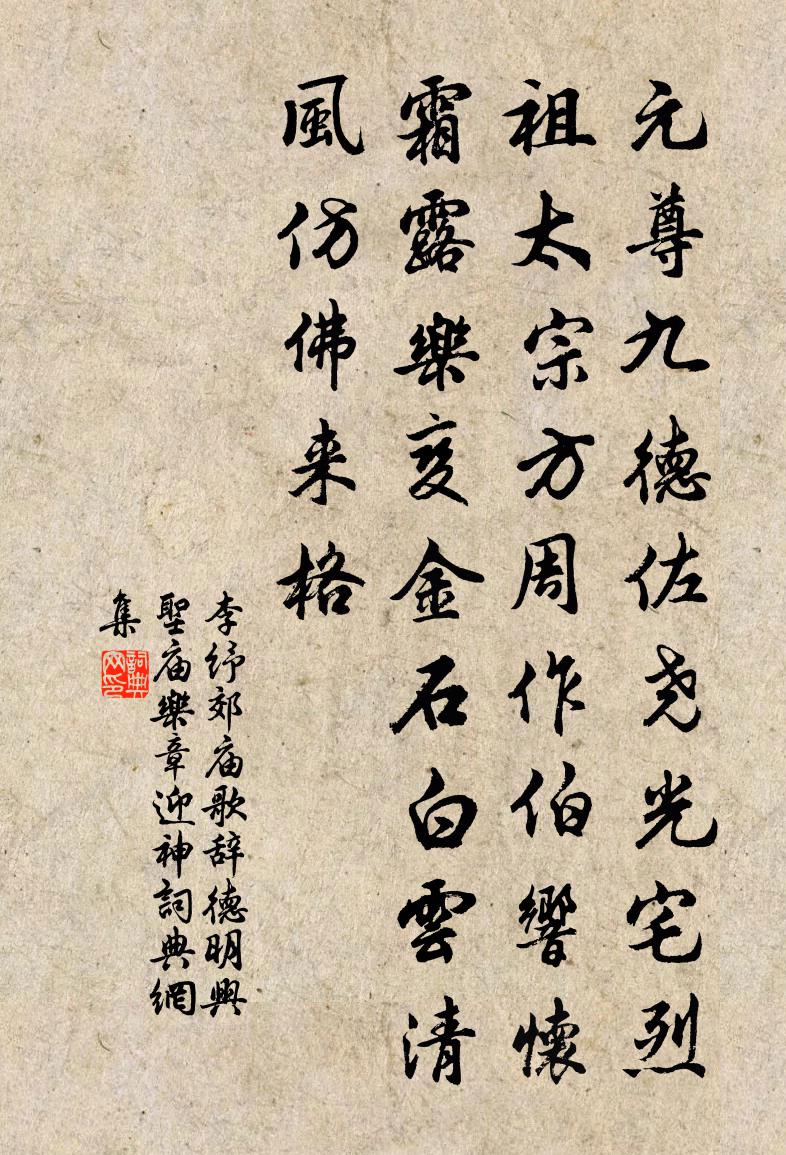 元尊九德佐尧光宅烈
祖太宗方周作伯響懷
霜露樂变金石白雲清
風仿佛来格
李纾郊庙歌辞德明興
聖庙樂章迎神詞典網
集
詞典网印